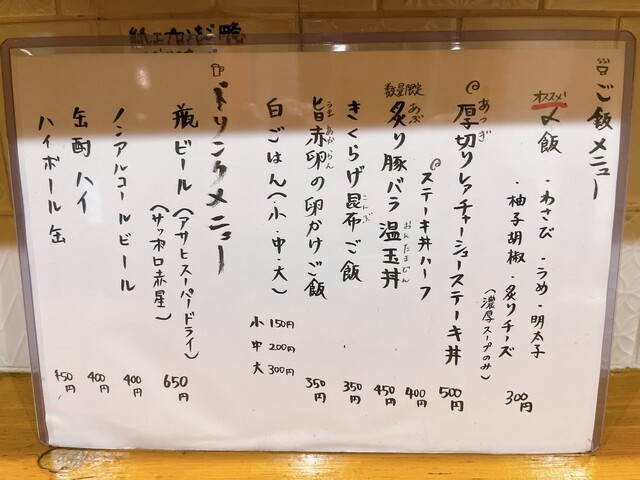 ご飯メニュー
オススメ!
〆飯
・わさび・うめ・明太子
・柚子胡椒・炙りチーズ
(濃厚スープのみ)
300円
あつぎ
@厚切りレアチャーシューステーキ丼
500円
@ステーキ丼ハーフ
400円
数量限定
あぶ
おんたまどん
炙り豚バラ温玉丼
450円
こんぶ
きくらげ昆布ご飯
350円
うま あからん
旨赤卵の卵かけご飯
350円
白ごはん(小・中・大)
小 150円
中 200円
大 300円
ドリンクメニュー
瓶ビール(アサヒスーパードライ)
(サッポロ赤星)
650円
ノンアルコールビール
400円
缶酎ハイ
400円
ハイボール缶
450円